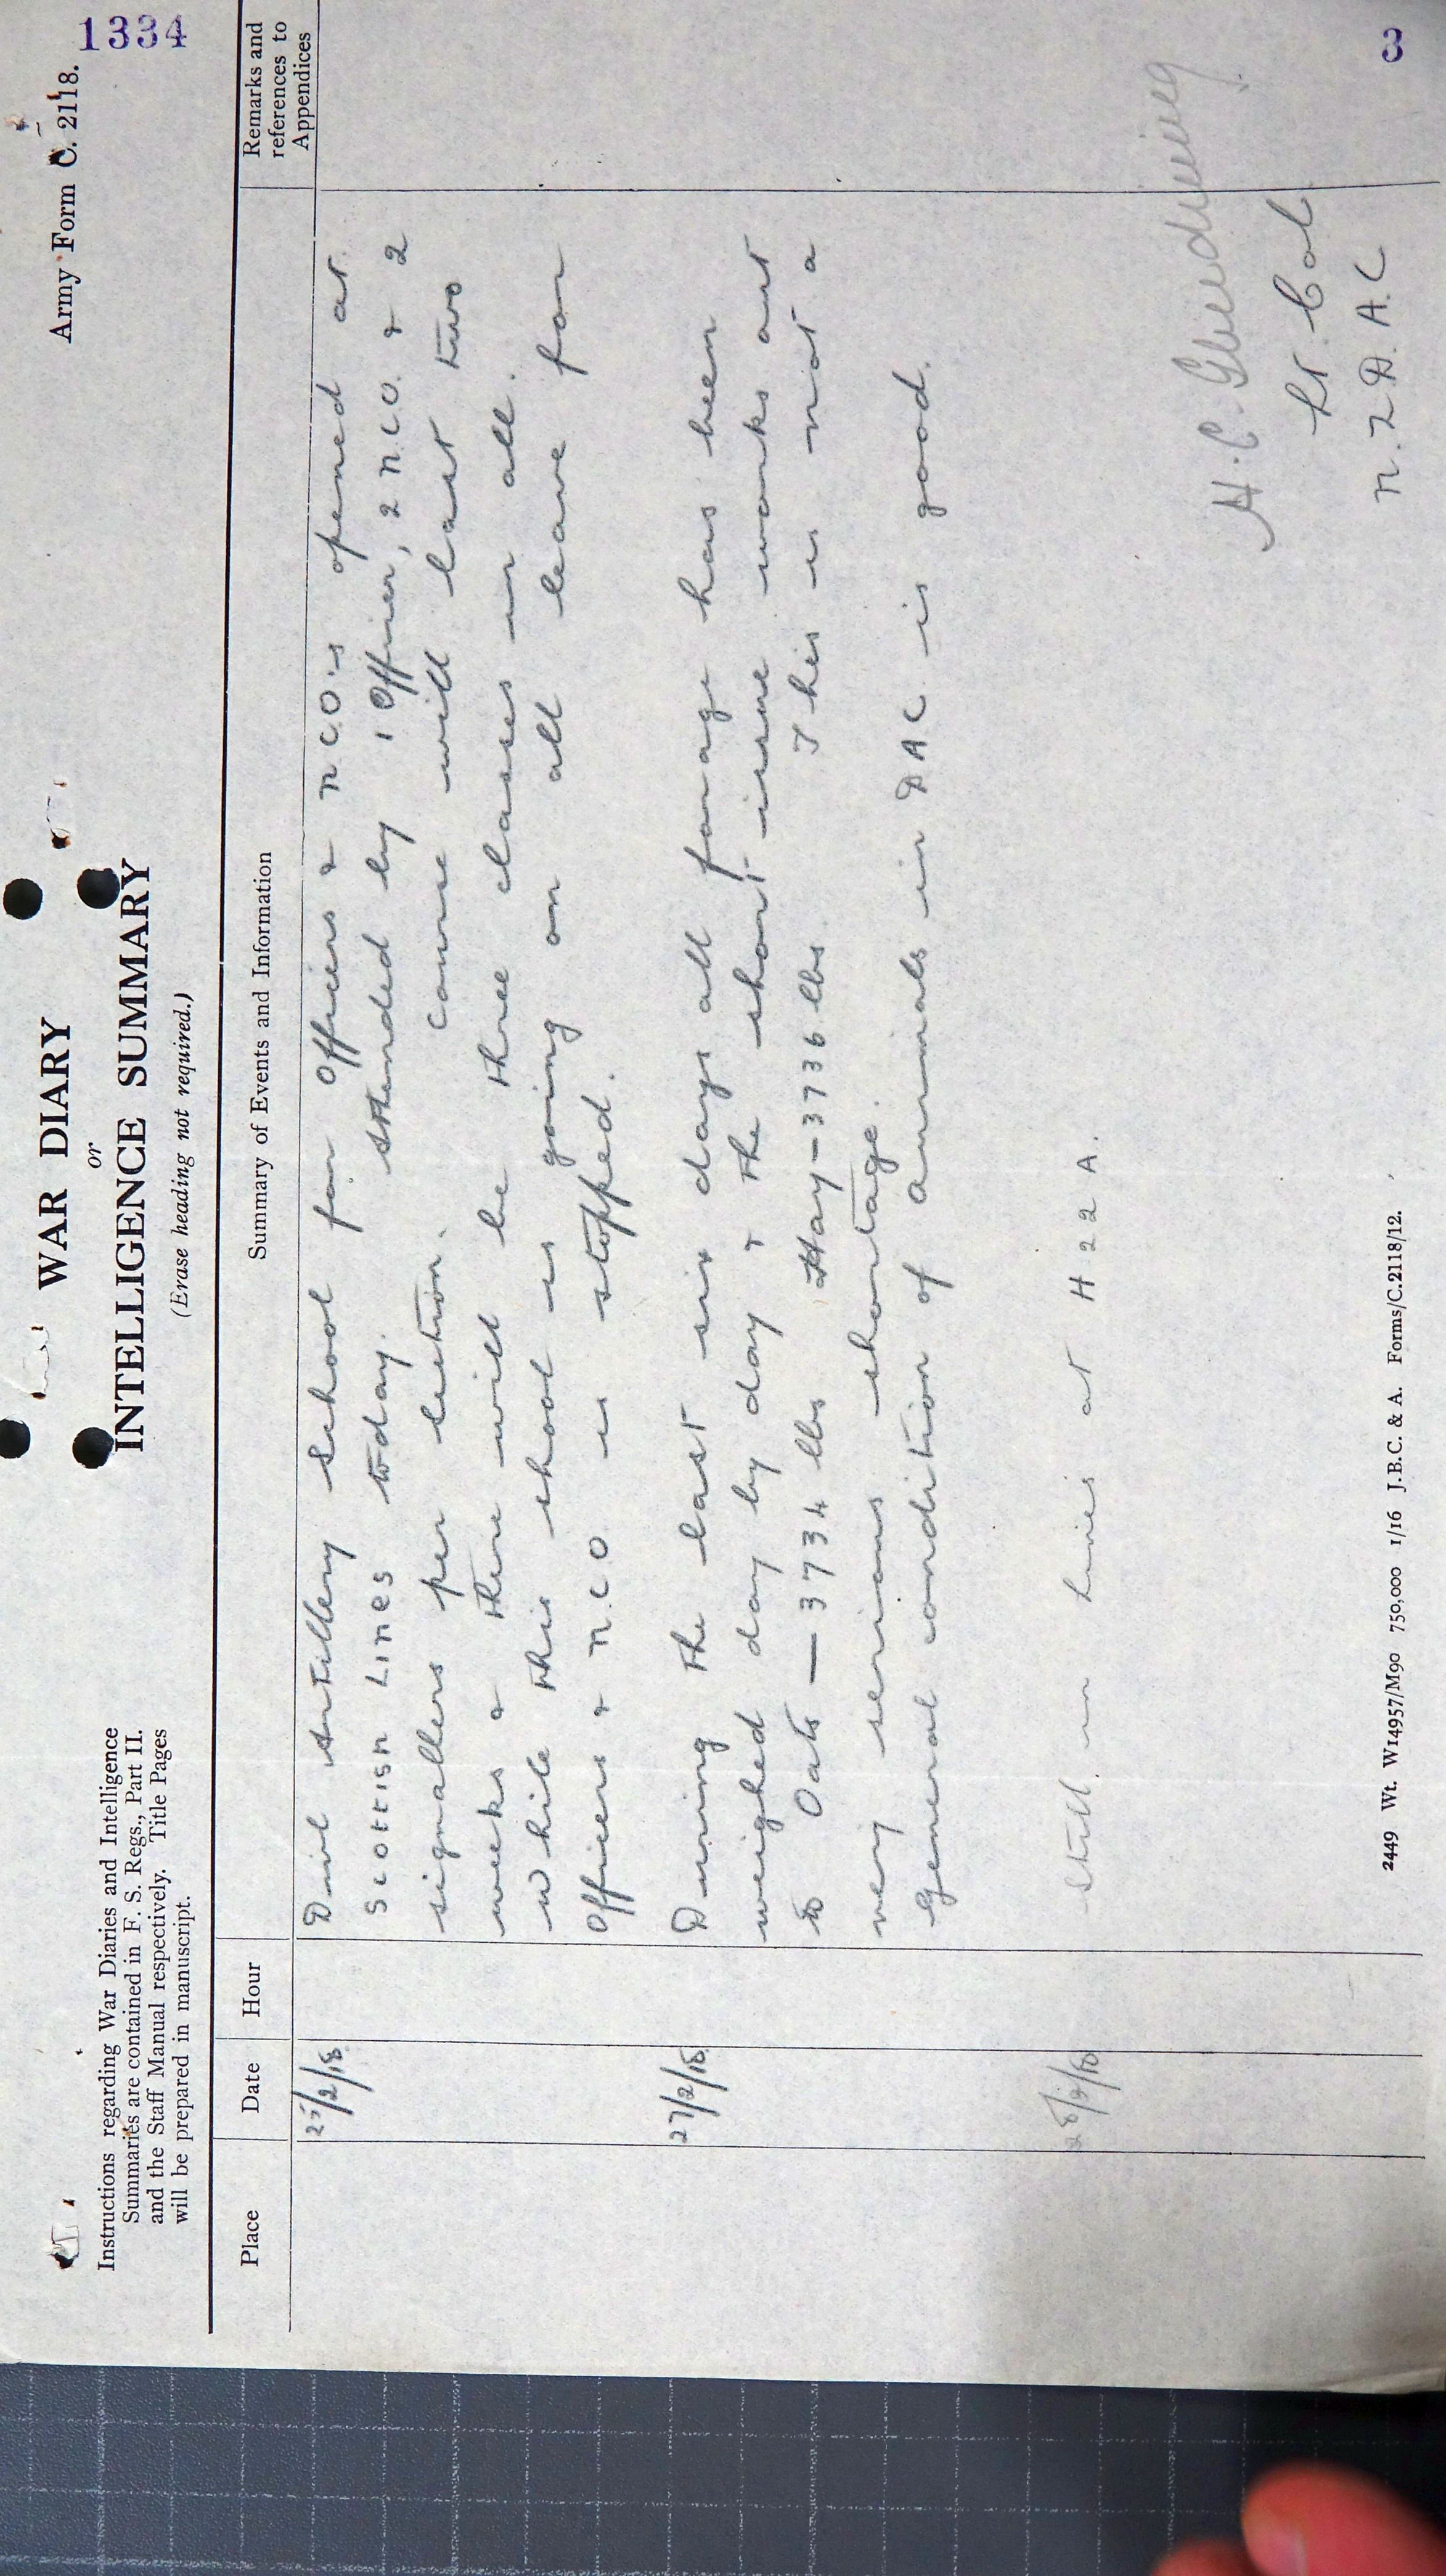 1334
Army Form C. 2118.
WAR DIARY
or
INTELLIGENCE SUMMARY
(Erase heading not required.)
Instructions regarding War Diaries and Intelligence
Summaries are contained in F. S. Regs., Part II.
and the Staff Manual respectively. Title Pages
will be prepared in manuscript.
Place
Date
Hour
Summary of Events and Information
Remarks and
references to
Appendices
25/2/18 Divl Artillery School for Officers & N.C.O.s opened at
Scottish Lines today. Attended by 1 Officer, 2 N.C.O. & 2
signallers per section. Course will last two
weeks & there will be three classes in all.
While this school is going on all leave for
Officers & N.C.O is stopped.
27/2/18 During the last six days all forage has been
weighed day by day & the short issue works out
to Oats — 3734 lbs Hay – 3736 lbs This is not a
very serious shortage.
General condition of animals in DAC is good.
28/2/18 Still in lines at H 22 A.
H.C. Glendining
Lt. Col
N.Z D.A.C
2449 Wt. W14957/M90 750,000 1/16 J.B.C. & A. Forms/C.2118/12.
3